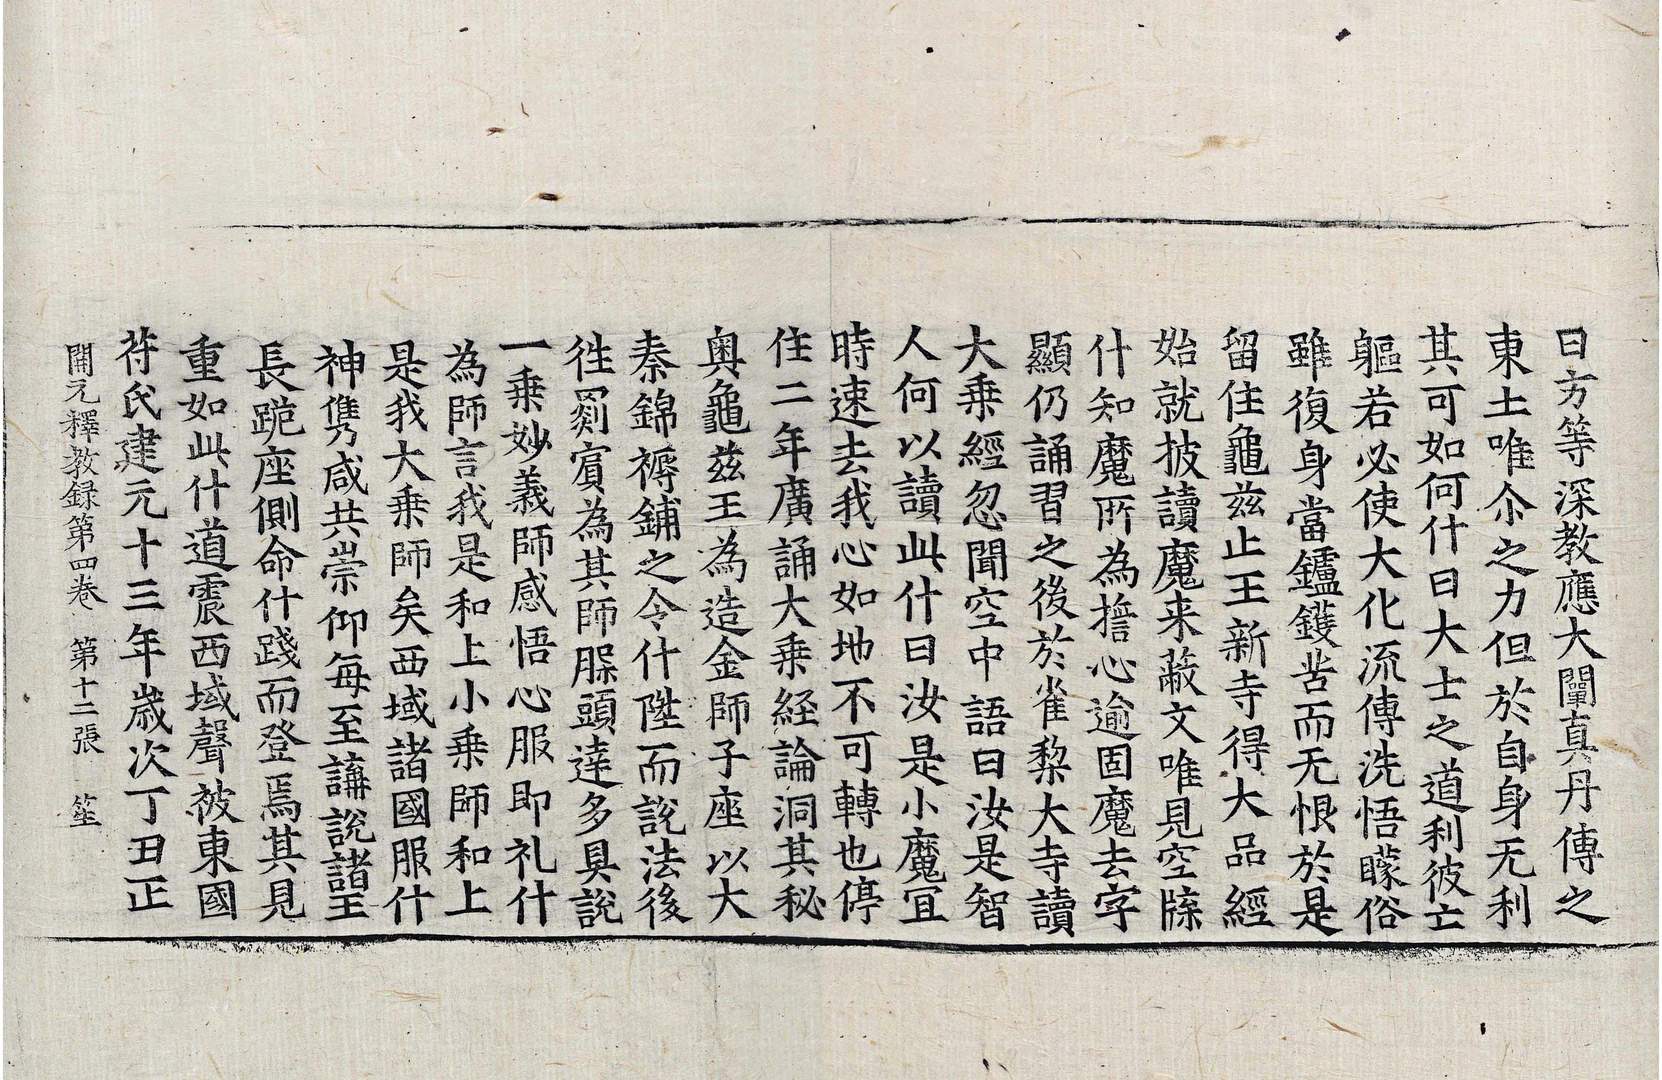 曰方等深教應大闡真丹傳之
東土唯尒之力但於自身无利
其可如何什曰大士之道利彼亡
軀若必使大化流傳洗悟矇俗
雖復身當鑪鑊苦而无恨於是
留住龜兹止王新寺得大品經
始就披讀魔来蔽文唯見空牒
什知魔所為擔心逾固魔去字
顯仍誦習之後於雀梨大寺讀
大乗經忽聞空中語曰汝是智
人何以讀此什曰汝是小魔宜
時速去我心如地不可轉也停
住二年廣誦大乗経論洞其秘
奥龜兹王為造金師子座以大
秦錦褥鋪之令什陞而説法後
徃罽賔為其師脲頭達多具說
一乗妙義師感悟心服即礼什
為師言我是和上小乗師和上
是我大乗師矣西域諸國服什
神雋咸共崇仰每至講說諸王
長跪座側命什踐而登焉其見
重如此什道震西域聲被東國
苻氏建元十三年歲次丁丑正
開元釋教録第四卷 第十二張 笙